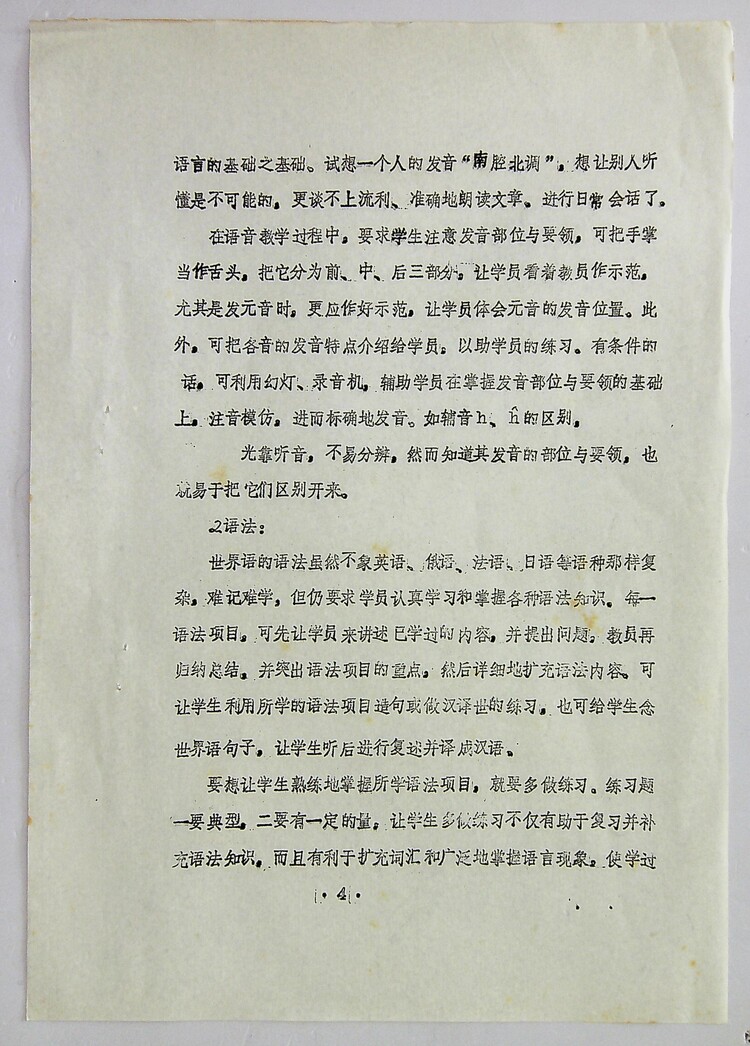 语言的基础之基础。试想一个人的发音“南腔北调”，想让别人听
懂是不可能的，更谈不上流利、准确地朗读文章、进行日常会话了。
在语音教学过程中，要求学生注意发音部位与要领，可把手掌
当作舌头，把它分为前、中、后三部分，让学员看着教员作示范，
尤其是发元音时，更应作好示范，让学员体会元音的发音位置。此
外，可把各音的发音特点介绍给学员，以助学员的练习。有条件的
话，可利用幻灯、录音机，辅助学员在掌握发音部位与要领的基础
上，注音模仿，进而标确地发音。如辅音h、ĥ的区别，
光靠听音，不易分辨，然而知道其发音的部位与要领，也
就易于把它们区别开来。
2语法：
世界语的语法虽然不象英语、俄语、法语、日语等语种那样复
杂，难记难学，但仍要求学员认真学习和掌握各种语法知识。每一
语法项目，可先让学员来讲述已学过的内容，并提出问题，教员再
归纳总结，并突出语法项目的重点，然后详细地扩充语法内容。可
让学生利用所学的语法项目造句或做汉译世的练习，也可给学生念
世界语句子，让学生听后进行复述并译成汉语。
要想让学生熟练地掌握所学语法项目，就要多做练习。练习题
一要典型，二要有一定的量，让学生多做练习不仅有助于复习并补
充语法知识，而且有利于扩充词汇和广泛地掌握语言现象，使学过
·4·